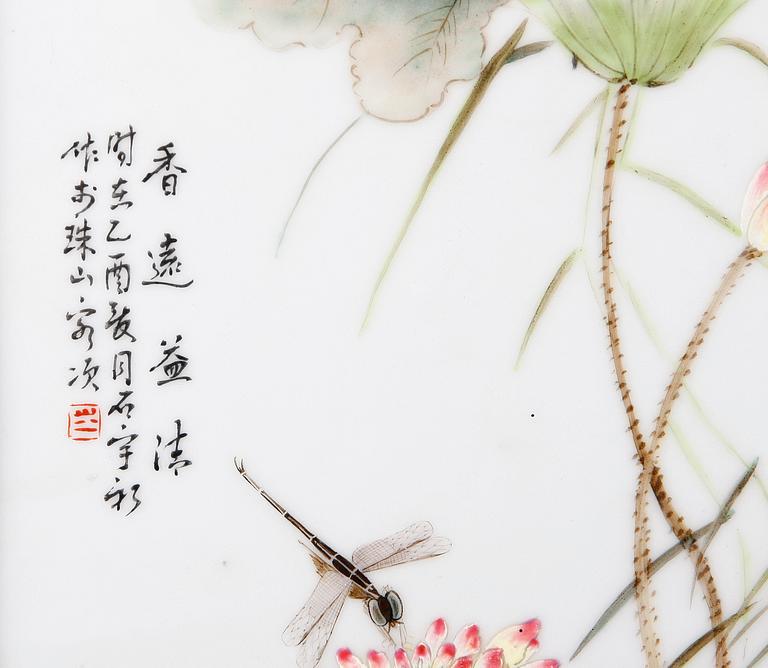 香遠益清
時在乙酉夏月石宇初
作於珠山客次